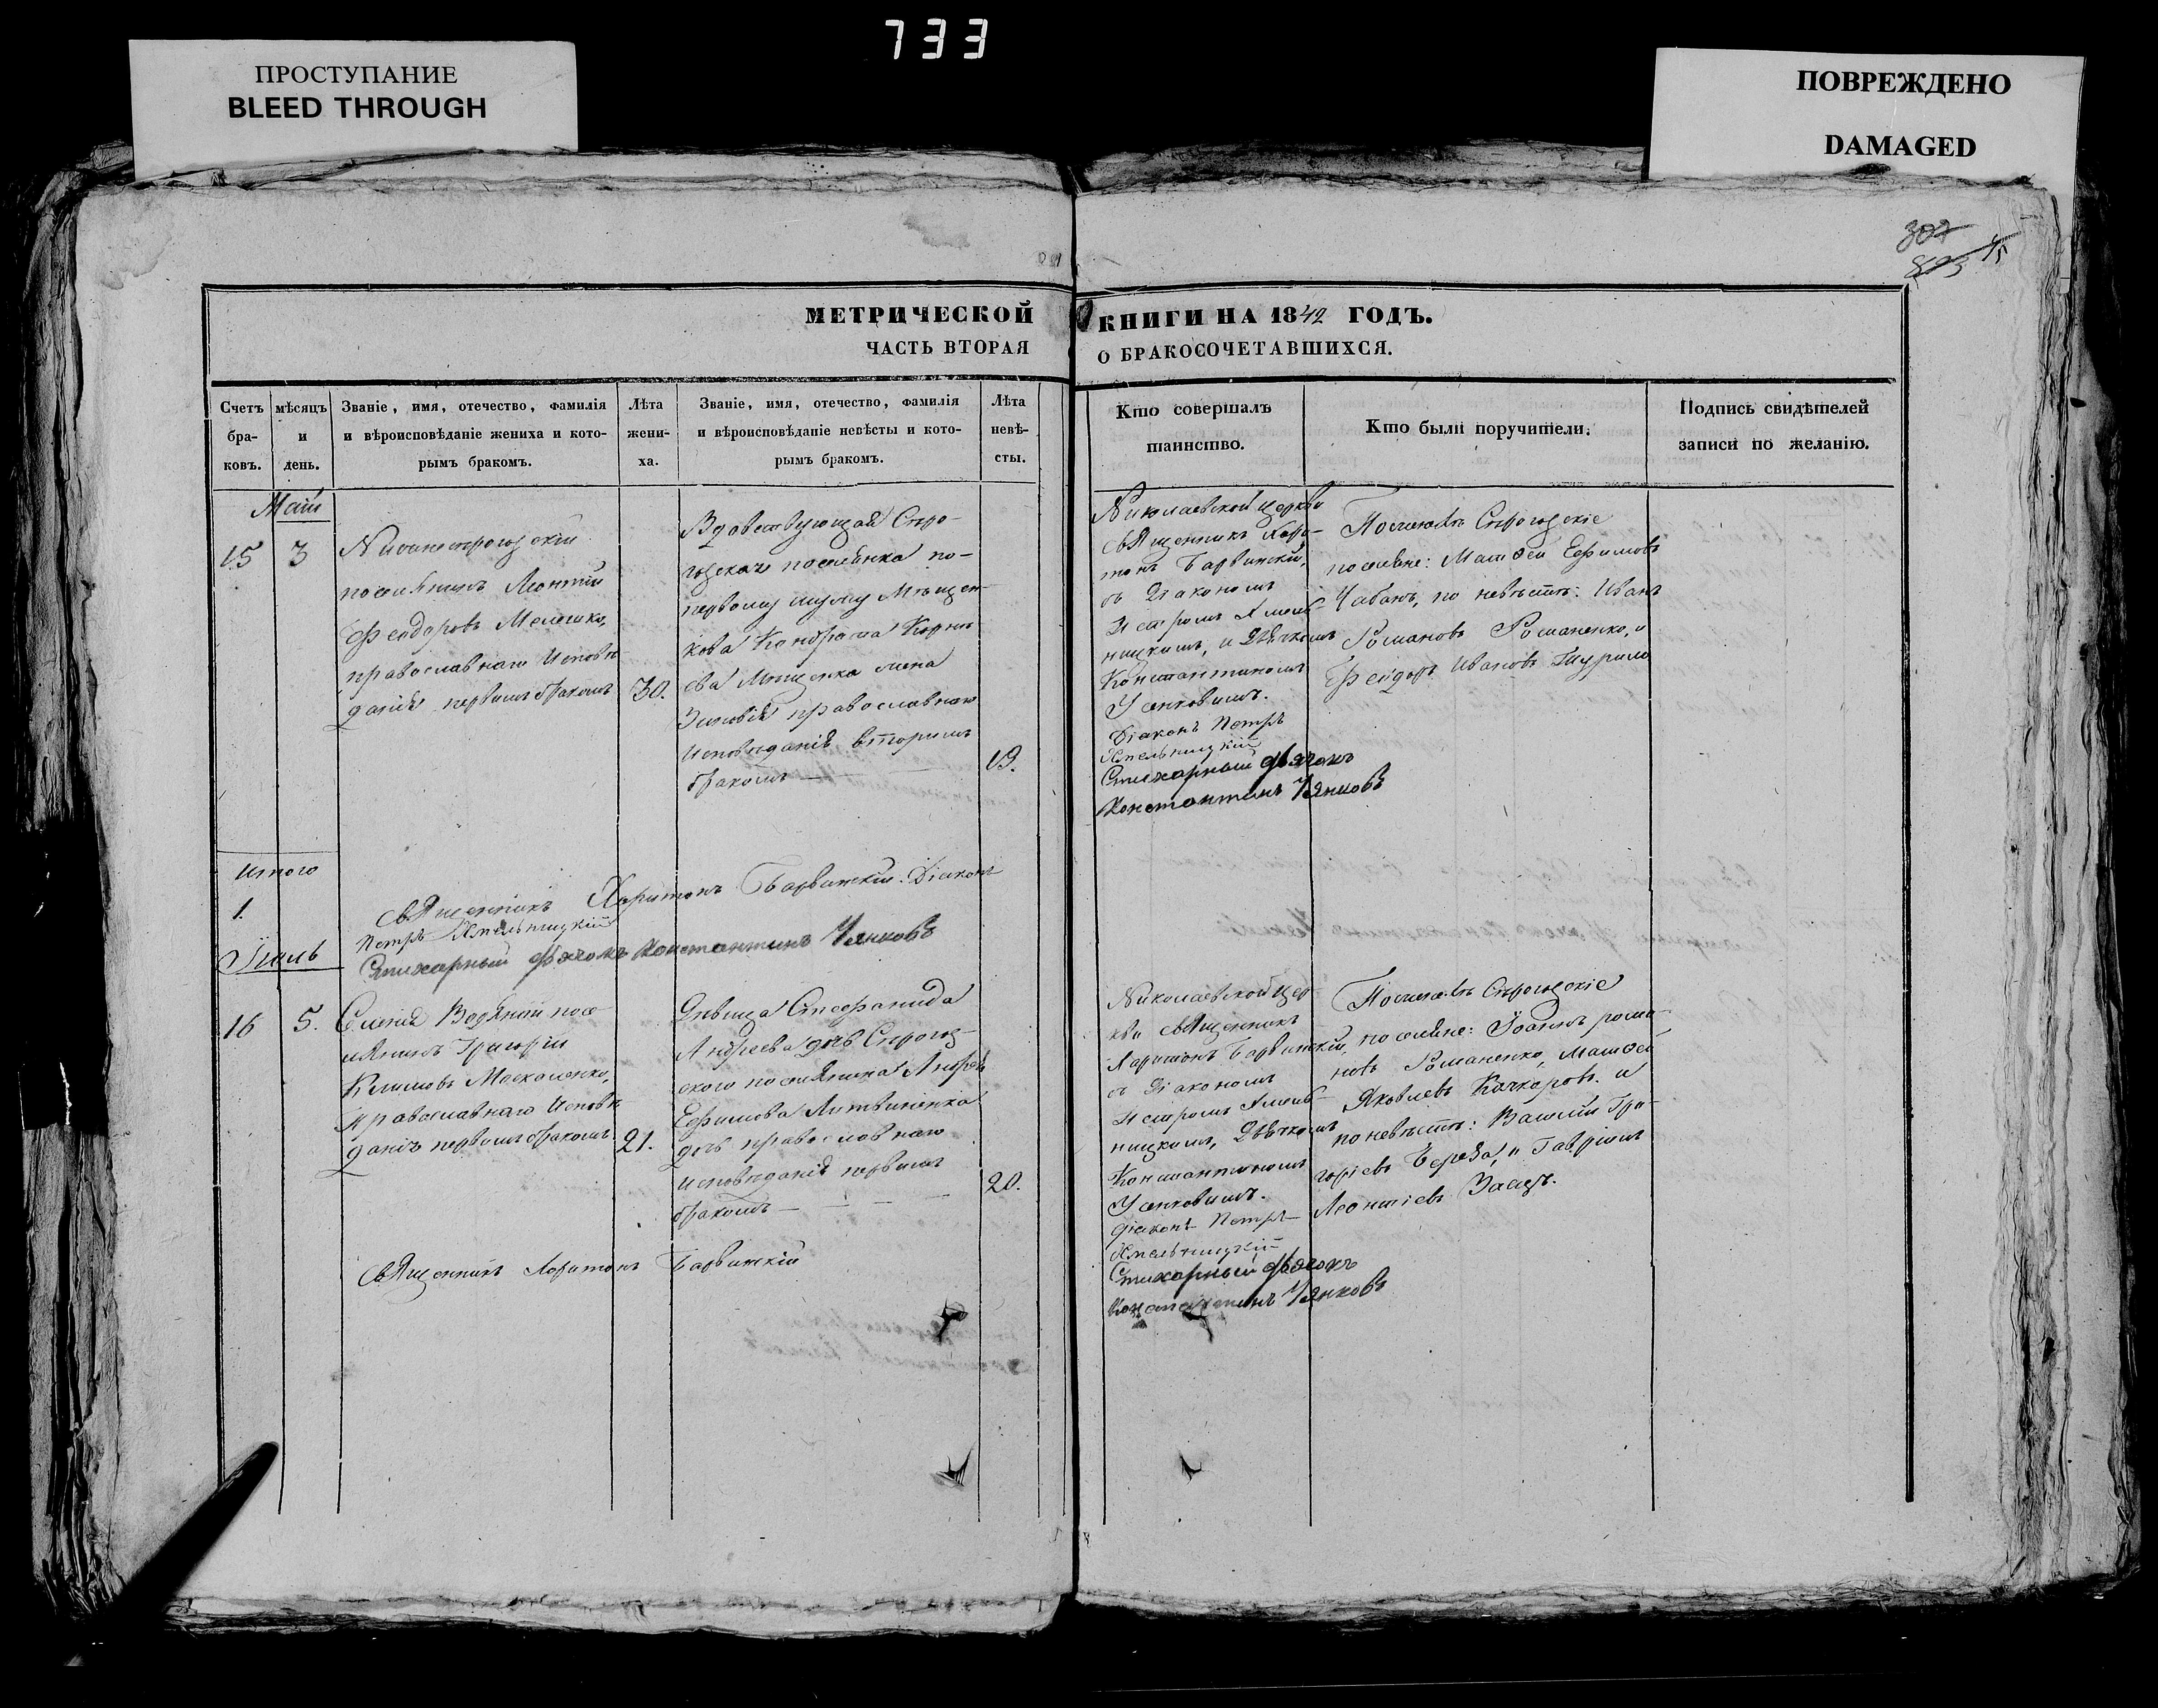 733
ПРОСТУПАНИЕ
BLEED THROUGH
ПОВРЕЖДЕНО
DAMAGED
МЕТРИЧЕСКОЙ КНИГИ НА 1842 ГОДЪ.
ЧАСТЬ ВТОРАЯ О БРАКОСОЧЕТАВШИХСЯ.
Счетъ бра-ковъ.
мѣсяцъ и день.
Званіе, имя, отечество, фамилія
и вѣроисповѣданіе жениха и кото-
рымъ бракомъ.
Лѣта жени-ха.
Званіе, имя, отечество, фамилія
и вѣроисповѣданіе невѣсты и кото-
рымъ бракомъ.
Лѣта невѣ-сты.
Кто совершалъ
таинство.
Кто были поручители.
Подпись свидѣтелей
записи по желанію.
Маій
15 3
поселянинъ Леонтій
Феодоровъ
православнаго исповѣ
данія первымъ бракомъ
30.
Вдовствующая Сѣро-
гозская поселянка по-
первому мужу Мѣщен-
кова Кондрата Корнѣ
ева Мѣщенка жена
Зиновія православнаго
исповѣданія вторымъ
бракомъ
19.
Николаевской церкви
священникъ Хари-
тонъ Барвинскій,
съ Діакономъ
Петромъ Хмель-
ницкимъ, и Дьячкомъ
Константиномъ
Усенковымъ.
Діаконъ Петръ
Хмельницкій
Стихарный дьячокъ
Константинъ Усенковъ
По женихѣ Сѣрогозскіе
поселяне: Матфей Ефимовъ
Чабанъ, по невѣстѣ: Иванъ
Романовъ Романенко, и
Феодоръ Ивановъ
Итого
1.
Священникъ Харитонъ Барвинскій. Діаконъ
Петръ Хмельницкій
Стихарный дьячокъ Константинъ Усенковъ
Іюль
16 5.
Селенія Водяной посе-
лянинъ Григорій
Климовъ Москаленко,
православнаго исповѣ
данія первымъ бракомъ
21.
Дѣвица Стефанида
Андреева дочь Сѣрогоз-
скаго поселянина Андрея
Ефимова Литвиненка
дочь православнаго
исповѣданія первымъ
бракомъ
20.
Николаевской цер-
кви священникъ
Харитонъ Барвинскій,
съ Діакономъ
Петромъ Хмель-
ницкимъ, Дьячкомъ
Константиномъ
Усенковымъ.
Діаконъ Петръ
Хмельницкій
Стихарный дьячокъ
Константинъ Усенковъ
По женихѣ Сѣрогозскіе
поселяне: Іоаннъ рома-
новъ Романенко, Матфей
Яковлевъ Качкаровъ. и
по невѣстѣ: Василій Гри-
горіевъ Береза, и Гавріилъ
Леонтіевъ Заецъ.
Священникъ Харитонъ Барвинскій